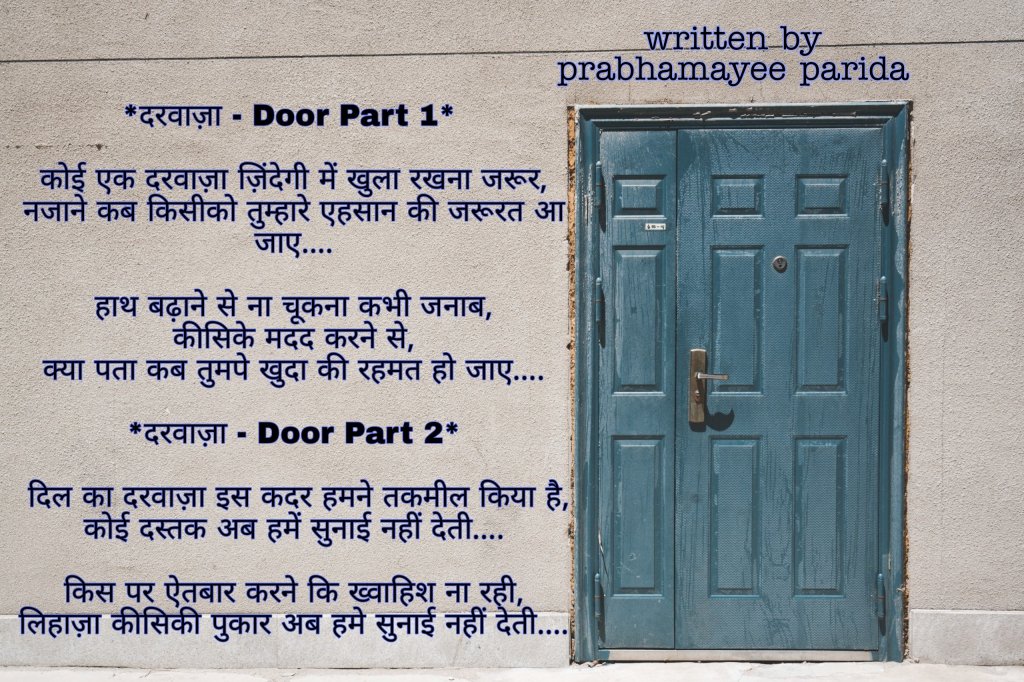 written by
prabhamayee parida
*दरवाज़ा - Door Part 1*
कोई एक दरवाज़ा ज़िंदेगी में खुला रखना जरूर,
नजाने कब किसीको तुम्हारे एहसान की जरूरत आ
जाए....
हाथ बढ़ाने से ना चूकना कभी जनाब,
कीसिके मदद करने से,
क्या पता कब तुमपे खुदा की रहमत हो जाए....
*दरवाज़ा - Door Part 2*
दिल का दरवाज़ा इस कदर हमने तकमील किया है,
कोई दस्तक अब हमें सुनाई नहीं देती....
किस पर ऐतबार करने कि ख्वाहिश ना रही,
लिहाज़ा कीसिकी पुकार अब हमे सुनाई नहीं देती....